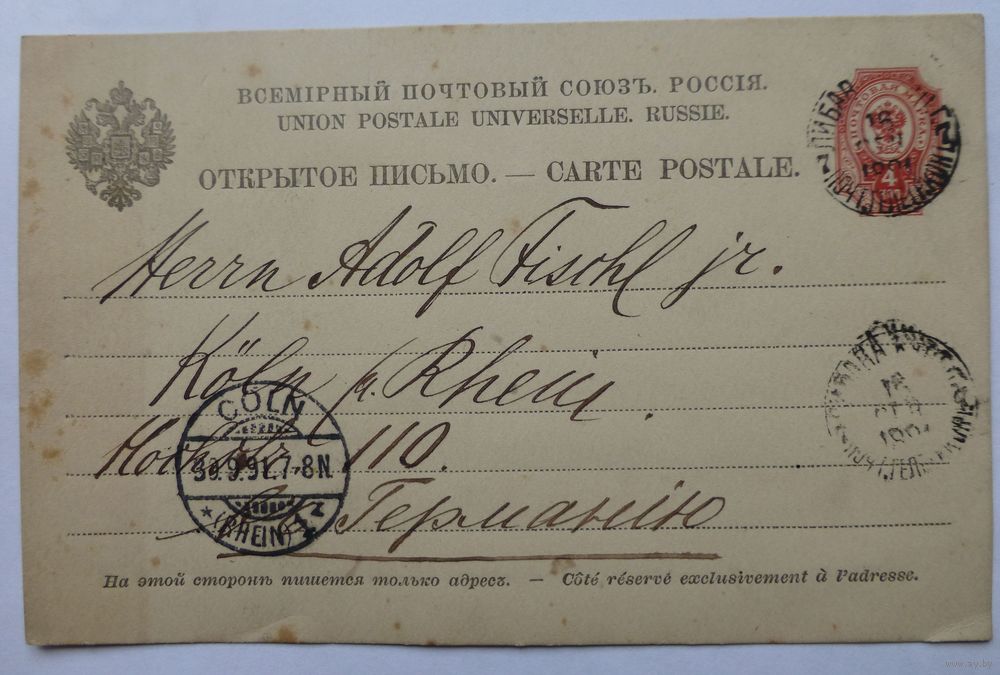 ВСЕМІРНЫЙ ПОЧТОВЫЙ СОЮЗЪ. РОССІЯ.
UNION POSTALE UNIVERSELLE. RUSSIE.
ОТКРЫТОЕ ПИСЬМО. — CARTE POSTALE.
ПОЧТОВАЯ МАРКА
4
1891
Herrn Adolf Fischl jr.
Köln a. Rhein.
110.
Германію
CÖLN
30.9.91.7-8N.
* (RHEIN) *
На этой сторонѣ пишется только адресъ. — Côté réservé exclusivement à l'adresse.
www.ay.by